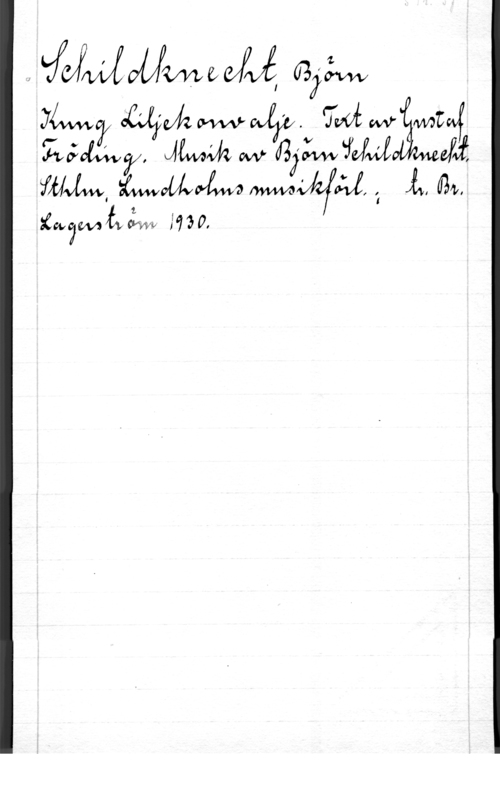 Schildknecht, Björn
Kung Liljekonvalje. Text av Gustaf
Fröding. Musik av Björn Schildknecht.
Sthlm, Lundholms musikförl. ; tr. Br.
Lagerström 1930.